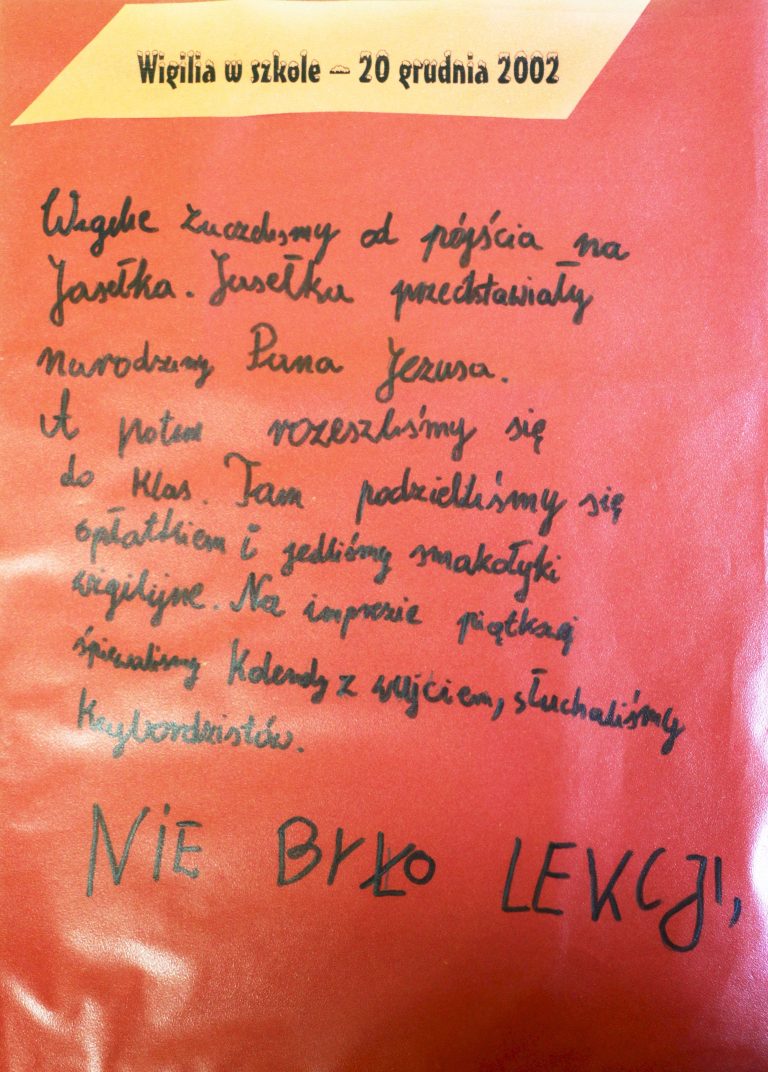 Wigilia w szkole – 20 grudnia 2002
Wigilie zaczeliśmy od pójścia na
Jasełka. Jasełka przedstawiały
narodziny Pana Jezusa.
A potem rozeszliśmy się
do klas. Tam podzieliliśmy się
opłatkiem i jedliśmy smakołyki
wigilijne. Na imprezie piątkzaj
śpiewalismy Kolendy z wujciem, słuchaliśmy
Keybordzistów.
NIE BYŁO LEKCJI,